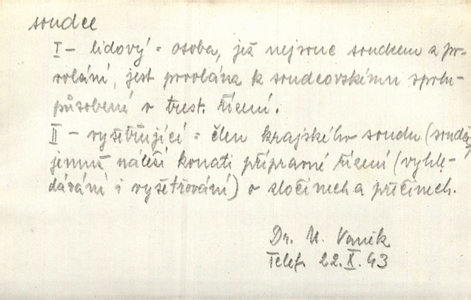 soudce
I – lidový = osoba, jež nejsouc soudcem z po-
volání, jest povolána k soudcovskému spolu-
působení v trest. řízení.
II – vyšetřující = člen krajského soudu (soudce
jemuž náleží konati přípravné řízení (vyhle-
dávání i vyšetřování) o zločinech a přečinech.
Dr. Vaněk
Telef. 22.X.43